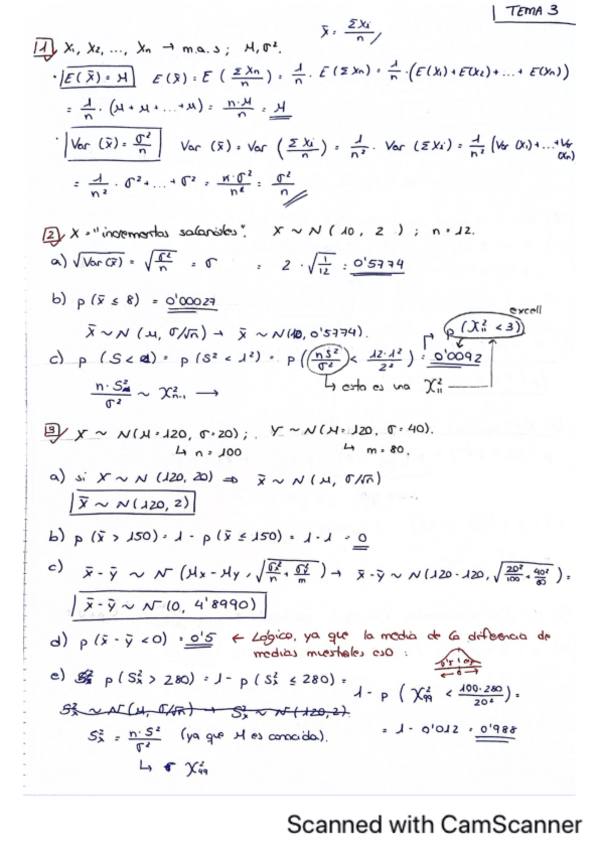 TEMA 3
x̄ = Σxi / n
1 X₁, X₂, ..., Xn → m.a.s ; μ, σ².
· E(x̄) = μ E(x̄) = E(Σxn / n) = 1/n · E(Σxn) = 1/n · (E(x₁) + E(x₂) + ... + E(xn))
= 1/n · (μ + μ + ... + μ) = n·μ / n = μ
· Var (x̄) = σ²/n Var (x̄) = Var (Σxi / n) = 1/n² · Var (Σxi) = 1/n² (Var (x₁) + ... + Var (xn)
= 1/n² · σ² + ... + σ² = n·σ² / n² = σ²/n
2 X = "incrementos salariales". X ~ N(10, 2) ; n = 12.
a) √Var(x̄) = √σ²/n = σ = 2 · √1/12 = 0'5774
b) p(x̄ ≤ 8) = 0'00027
x̄ ~ N(μ, σ/√n) → x̄ ~ N(10, 0'5774).
excell
p(χ²₁₁ < 3)
c) p(S < 1) = p(S² < 1²) = p(nS²/σ² < 12·1²/2²) = 0'0092
↳ esto es una χ²₁₁
n·S²/σ² ~ χ²n-1 →
3 X ~ N(μ=120, σ=20) ; Y ~ N(μ=120, σ=40).
↳ n = 100 ↳ m = 80.
a) si X ~ N(120, 20) ⇒ x̄ ~ N(μ, σ/√n)
x̄ ~ N(120, 2)
b) p(x̄ > 150) = 1 - p(x̄ ≤ 150) = 1 - 1 = 0
c) x̄ - ȳ ~ N(μx - μy, √σx²/n + σy²/m) → x̄ - ȳ ~ N(120 - 120, √20²/100 + 40²/80) =
x̄ - ȳ ~ N(0, 4'8990)
d) p(x̄ - ȳ < 0) = 0'5 ← Lógico, ya que la media de la diferencia de
medias muestrales es 0 :
e) p(Sx² > 280) = 1 - p(Sx² ≤ 280) = 1 - p(χ²₉₉ < 100·280/20²) =
Sx² ~ N(μ, σ/√n) → Sx² ~ N(120, 2)
= 1 - 0'012 = 0'988
Sx² = n·S²/σ² (ya que μ es conocida).
↳ σ χ²₉₉
Scanned with CamScanner